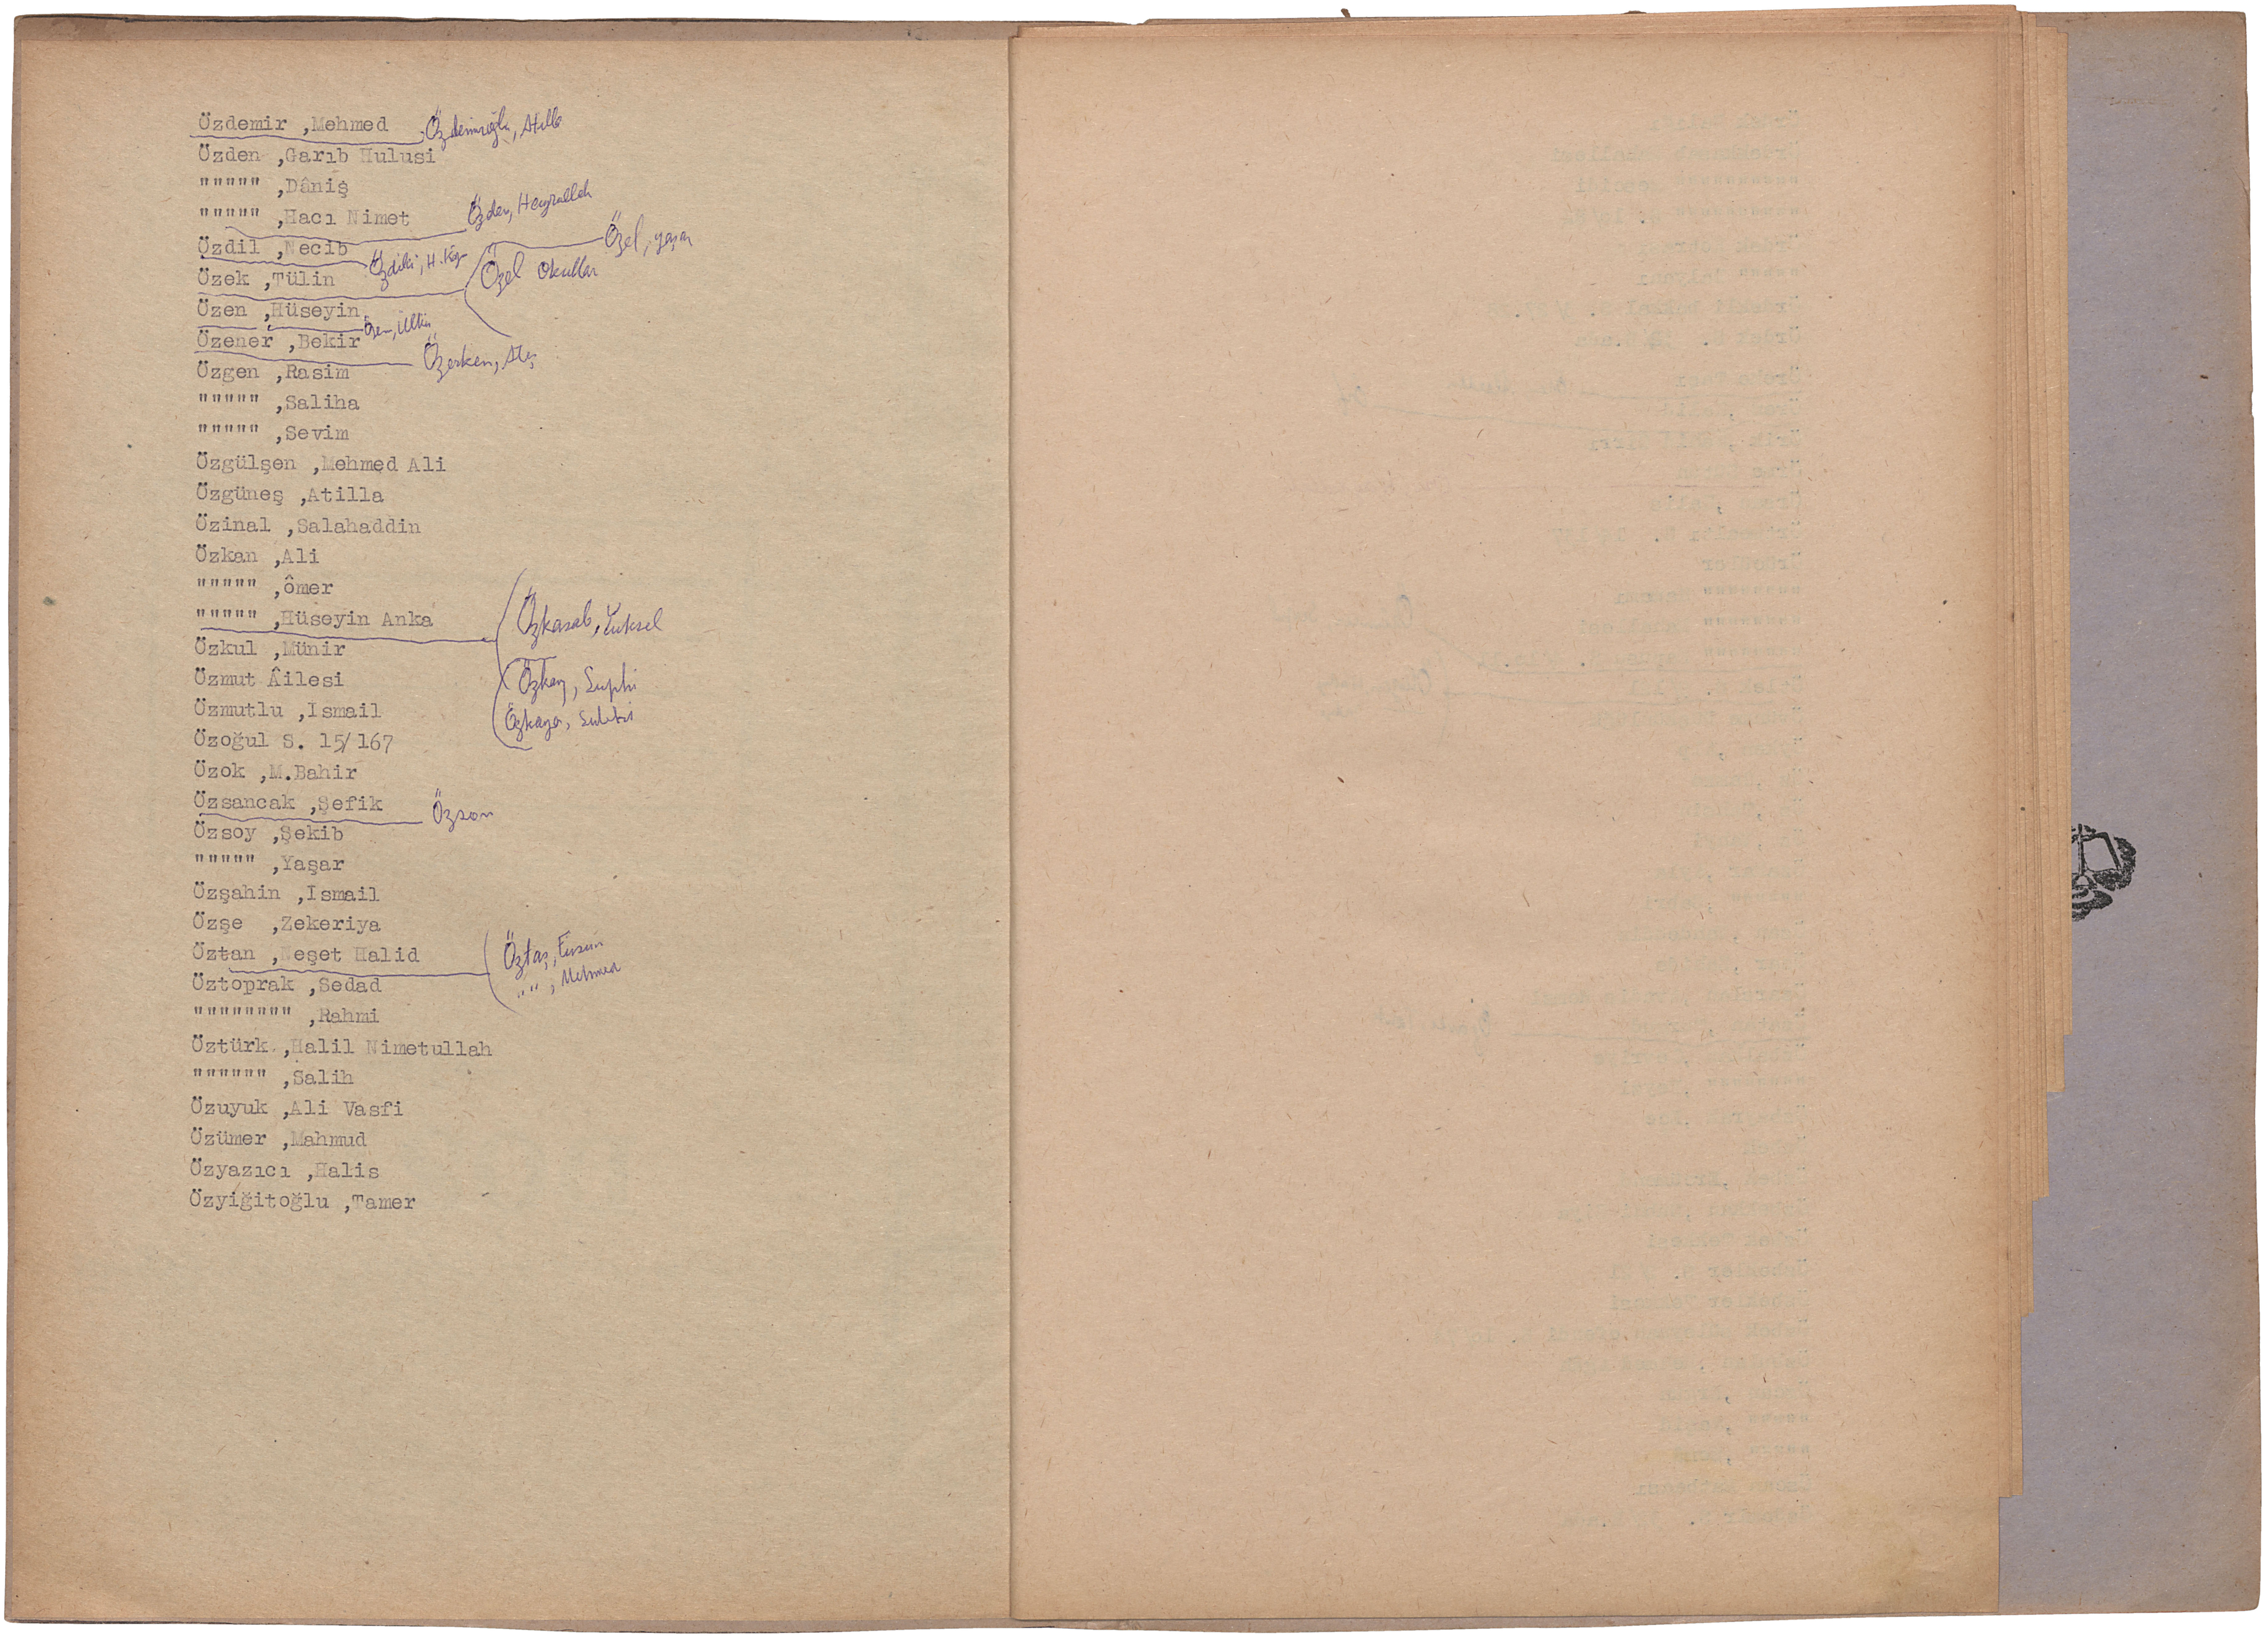 Özdemir ,Mehmed Özdemiroğlu, Atilla
Özden ,Garıb Hulusi
""""" ,Dâniş
""""" ,Hacı Nimet Özden, Hayrullah
Özdil ,Necib Özel, Yaşar
Özek ,Tülin Özel Okullar
Özen ,Hüseyin Özen,
Özener ,Bekir Özerken, Ateş
Özgen ,Rasim
""""" ,Saliha
""""" ,Sevim
Özgülşen ,Mehmed Ali
Özgüneş ,Atilla
Özinal ,Salahaddin
Özkan ,Ali
""""" ,ômer
""""" ,Hüseyin Anka Özkasab, Yüksel
Özkul ,Münir
Özmut Âilesi Özkay, Suphi
Özmutlu ,Ismail Özkaya,
Özoğul S. 15/167
Özok ,M.Bahir
Özsancak ,Şefik Özson
Özsoy ,Şekib
""""" ,Yaşar
Özşahin ,Ismail
Özşe ,Zekeriya
Öztan ,Neşet Halid Öztaş, Ersun
"" , Mehmed
Öztoprak ,Sedad
"""""""" ,Rahmi
Öztürk ,Halil Nimetullah
"""""" ,Salih
Özuyuk ,Ali Vasfi
Özümer ,Mahmud
Özyazıcı ,Halis
Özyiğitoğlu ,Tamer